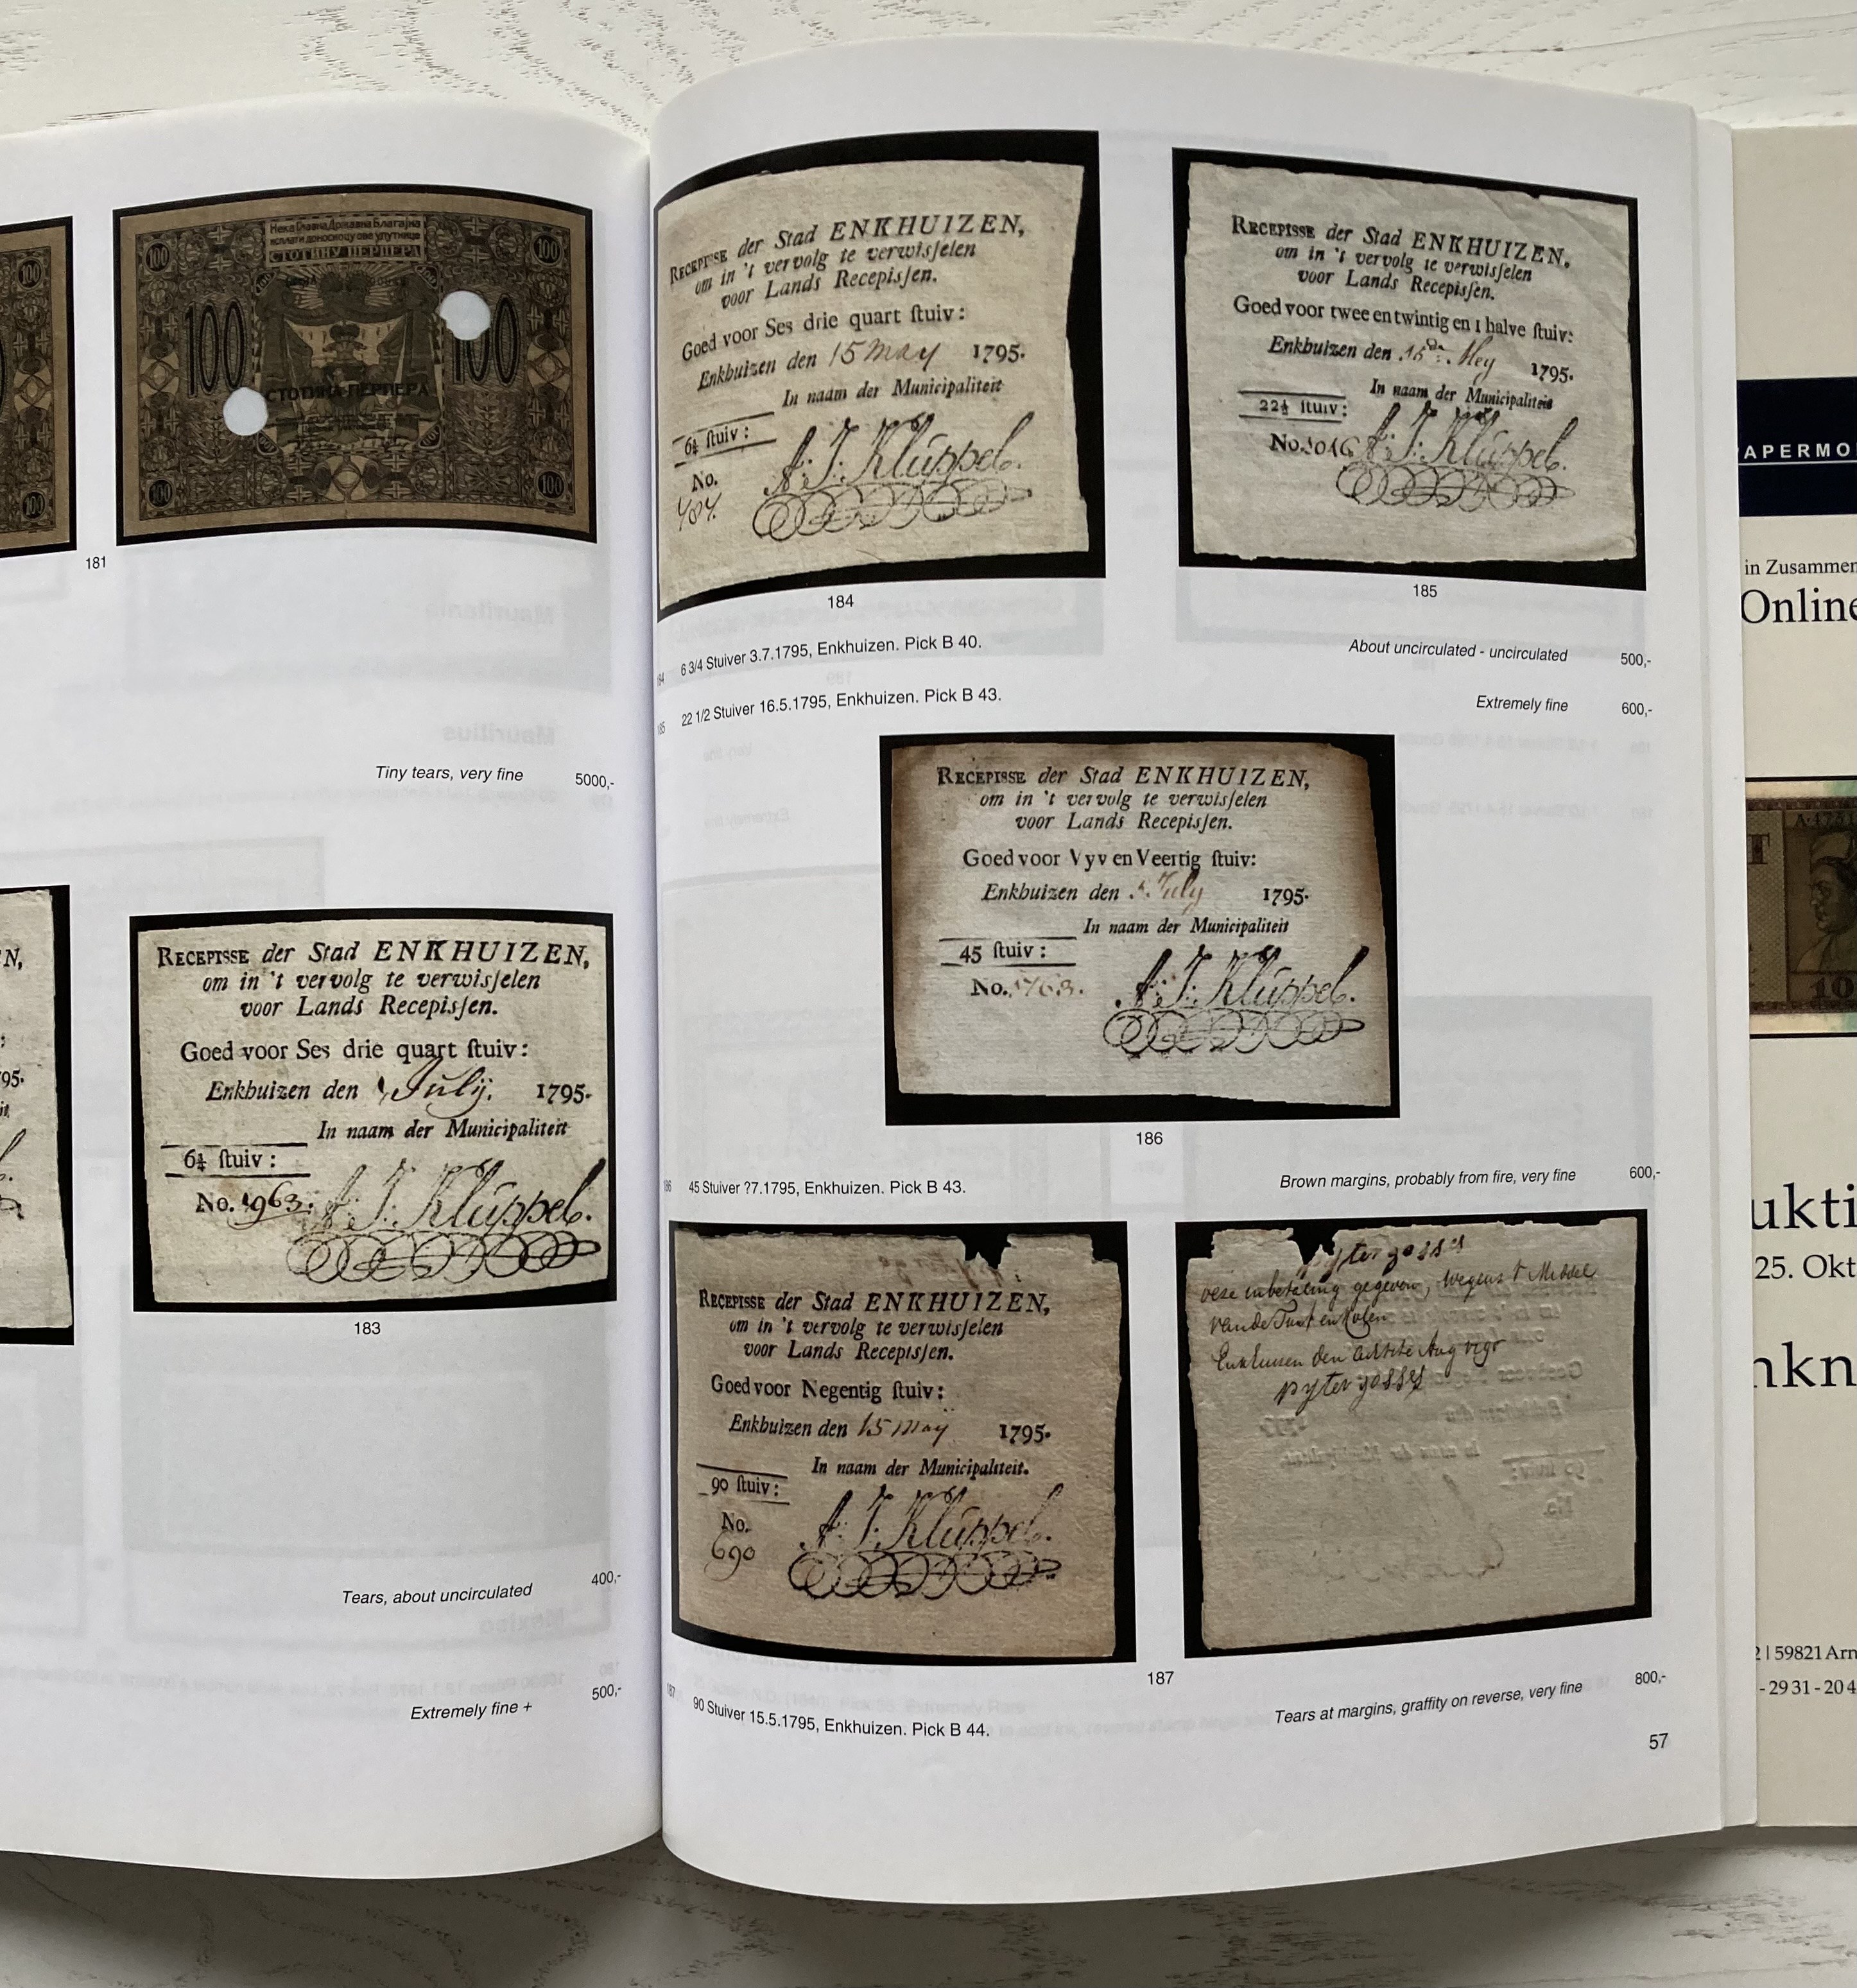 Нека Главна Државна Благајна
исплати доносиоцу ове упутнице
СТОТИНУ ПЕРПЕРА
100
100
100
100
СТОТИНА ПЕРПЕРА
100
100
100
100
181
Tiny tears, very fine 5000,-
N,
95.
RECEPISSE der Stad ENKHUIZEN,
om in 't vervolg te verwisſelen
voor Lands Recepisſen.
Goed voor Ses drie quart ſtuiv:
Enkhuizen den July. 1795.
In naam der Municipaliteit
6¾ ſtuiv:
No. 1963. A. J. Kluppel.
183
Tears, about uncirculated 400,-
Extremely fine + 500,-
RECEPISSE der Stad ENKHUIZEN,
om in 't vervolg te verwisſelen
voor Lands Recepisſen.
Goed voor Ses drie quart ſtuiv:
Enkhuizen den 15 May 1795.
In naam der Municipaliteit
6¾ ſtuiv:
A. J. Kluppel.
No.
484.
184
RECEPISSE der Stad ENKHUIZEN.
om in 't vervolg te verwisſelen
voor Lands Recepisſen.
Goed voor twee en twintig en 1 halve ſtuiv:
Enkhuizen den 16de Mey 1795.
In naam der Municipaliteit
22½ ſtuiv:
No. 1016 A. J. Kluppel.
185
184 6 3/4 Stuiver 3.7.1795, Enkhuizen. Pick B 40. About uncirculated - uncirculated 500,-
185 22 1/2 Stuiver 16.5.1795, Enkhuizen. Pick B 43. Extremely fine 600,-
RECEPISSE der Stad ENKHUIZEN,
om in 't vervolg te verwisſelen
voor Lands Recepisſen.
Goed voor Vyv en Veertig ſtuiv:
Enkhuizen den July 1795.
In naam der Municipaliteit
45 ſtuiv:
No. 1763. A. J. Kluppel.
186
186 45 Stuiver ?7.1795, Enkhuizen. Pick B 43. Brown margins, probably from fire, very fine 600,-
RECEPISSE der Stad ENKHUIZEN,
om in 't vervolg te verwisſelen
voor Lands Recepisſen.
Goed voor Negentig ſtuiv:
Enkhuizen den 15 may 1795.
In naam der Municipaliteit.
90 ſtuiv:
No. A. J. Kluppel.
690
pyter gosses
deze in betaling gegeven, wegens t Middel
van de Turf en Kolen
Enkhuisen den achtste Aug
pyter gosses
187
187 90 Stuiver 15.5.1795, Enkhuizen. Pick B 44. Tears at margins, graffity on reverse, very fine 800,-
57
APERMO
in Zusammen
Online
10
ukti
25. Okt
nkn
2 | 59821 Arn
- 29 31 - 20 4